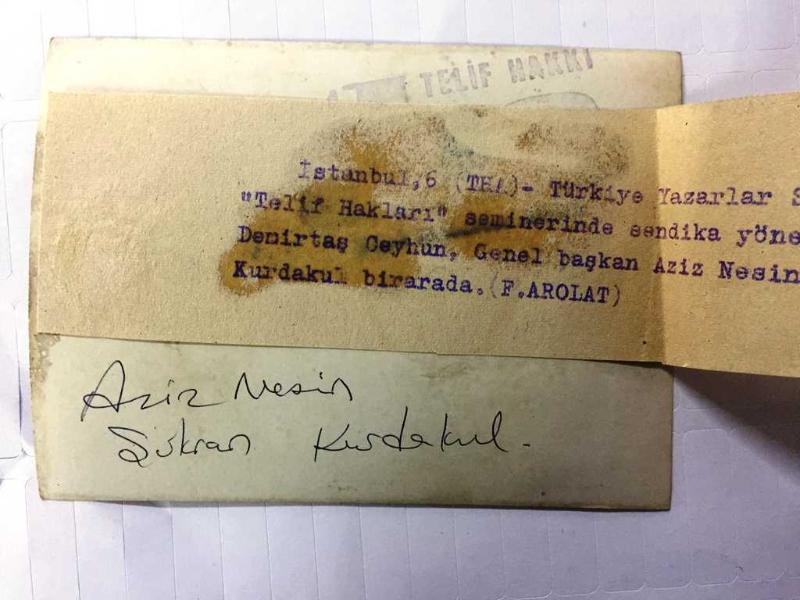 TELİF HAKKI
İstanbul,6 (THA)- Türkiye Yazarlar S
"Telif Hakları" seminerinde sendika yöne
Demirtaş Ceyhun, Genel başkan Aziz Nesin
Kurdakul birarada.(F.AROLAT)
Aziz Nesin
Şükran Kurdakul.